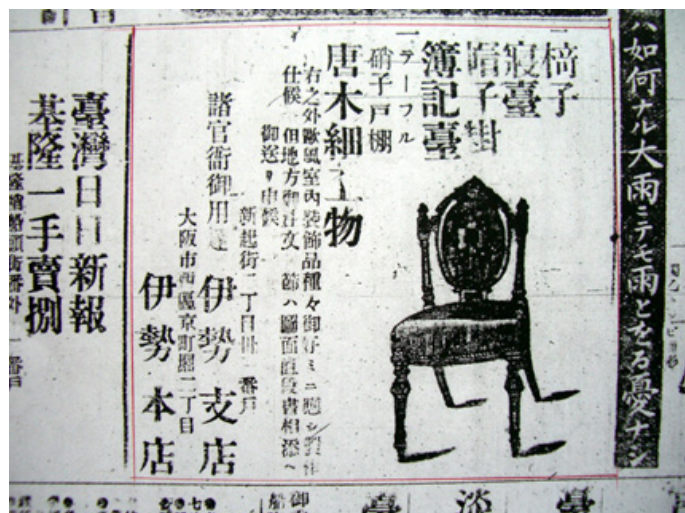 ハ如何ナル大雨ニテモ雨とをる憂ナシ
一椅子
寢臺
帽子掛
簿記臺
一テーフル
硝子戸棚
唐木細工物
右之外歐風室內裝飾品種々御好ミニ應シ製作
仕候 但地方御注文ノ節ハ圖面直段書相添ヘ
御送リ申候
諸官衙御用達
新起街一丁目卅一番戸
伊勢支店
大阪市西區京町堀二丁目
伊勢本店
臺灣日日新報
基隆一手賣捌